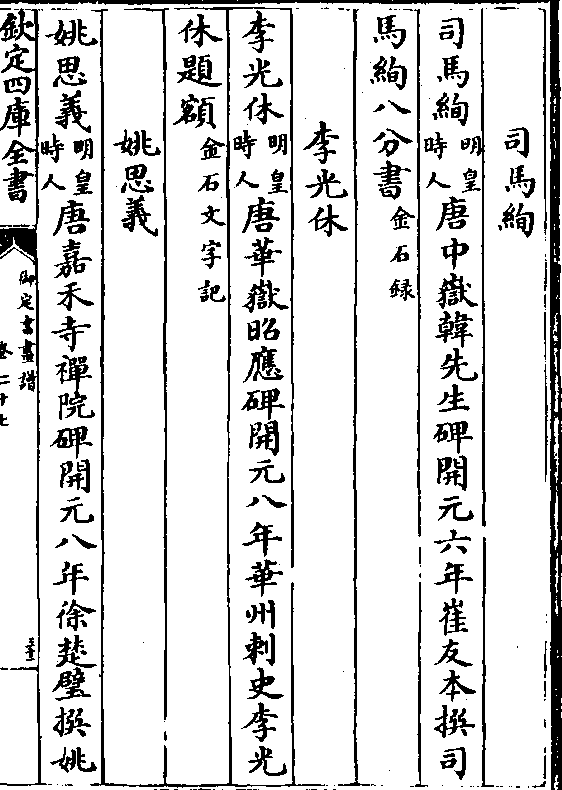 司馬絢
司馬絢明皇時人唐中嶽韓先生碑開元六年崔友本撰司
馬絢八分書金石録
李光休
李光休明皇時人唐華嶽昭應碑開元八年華州刺史李光
休題額金石文字記
姚思義
姚思義明皇時人唐嘉禾寺禪院碑開元八年徐楚璧撰姚
欽定四庫全書
御定書畫譜
卷二十七